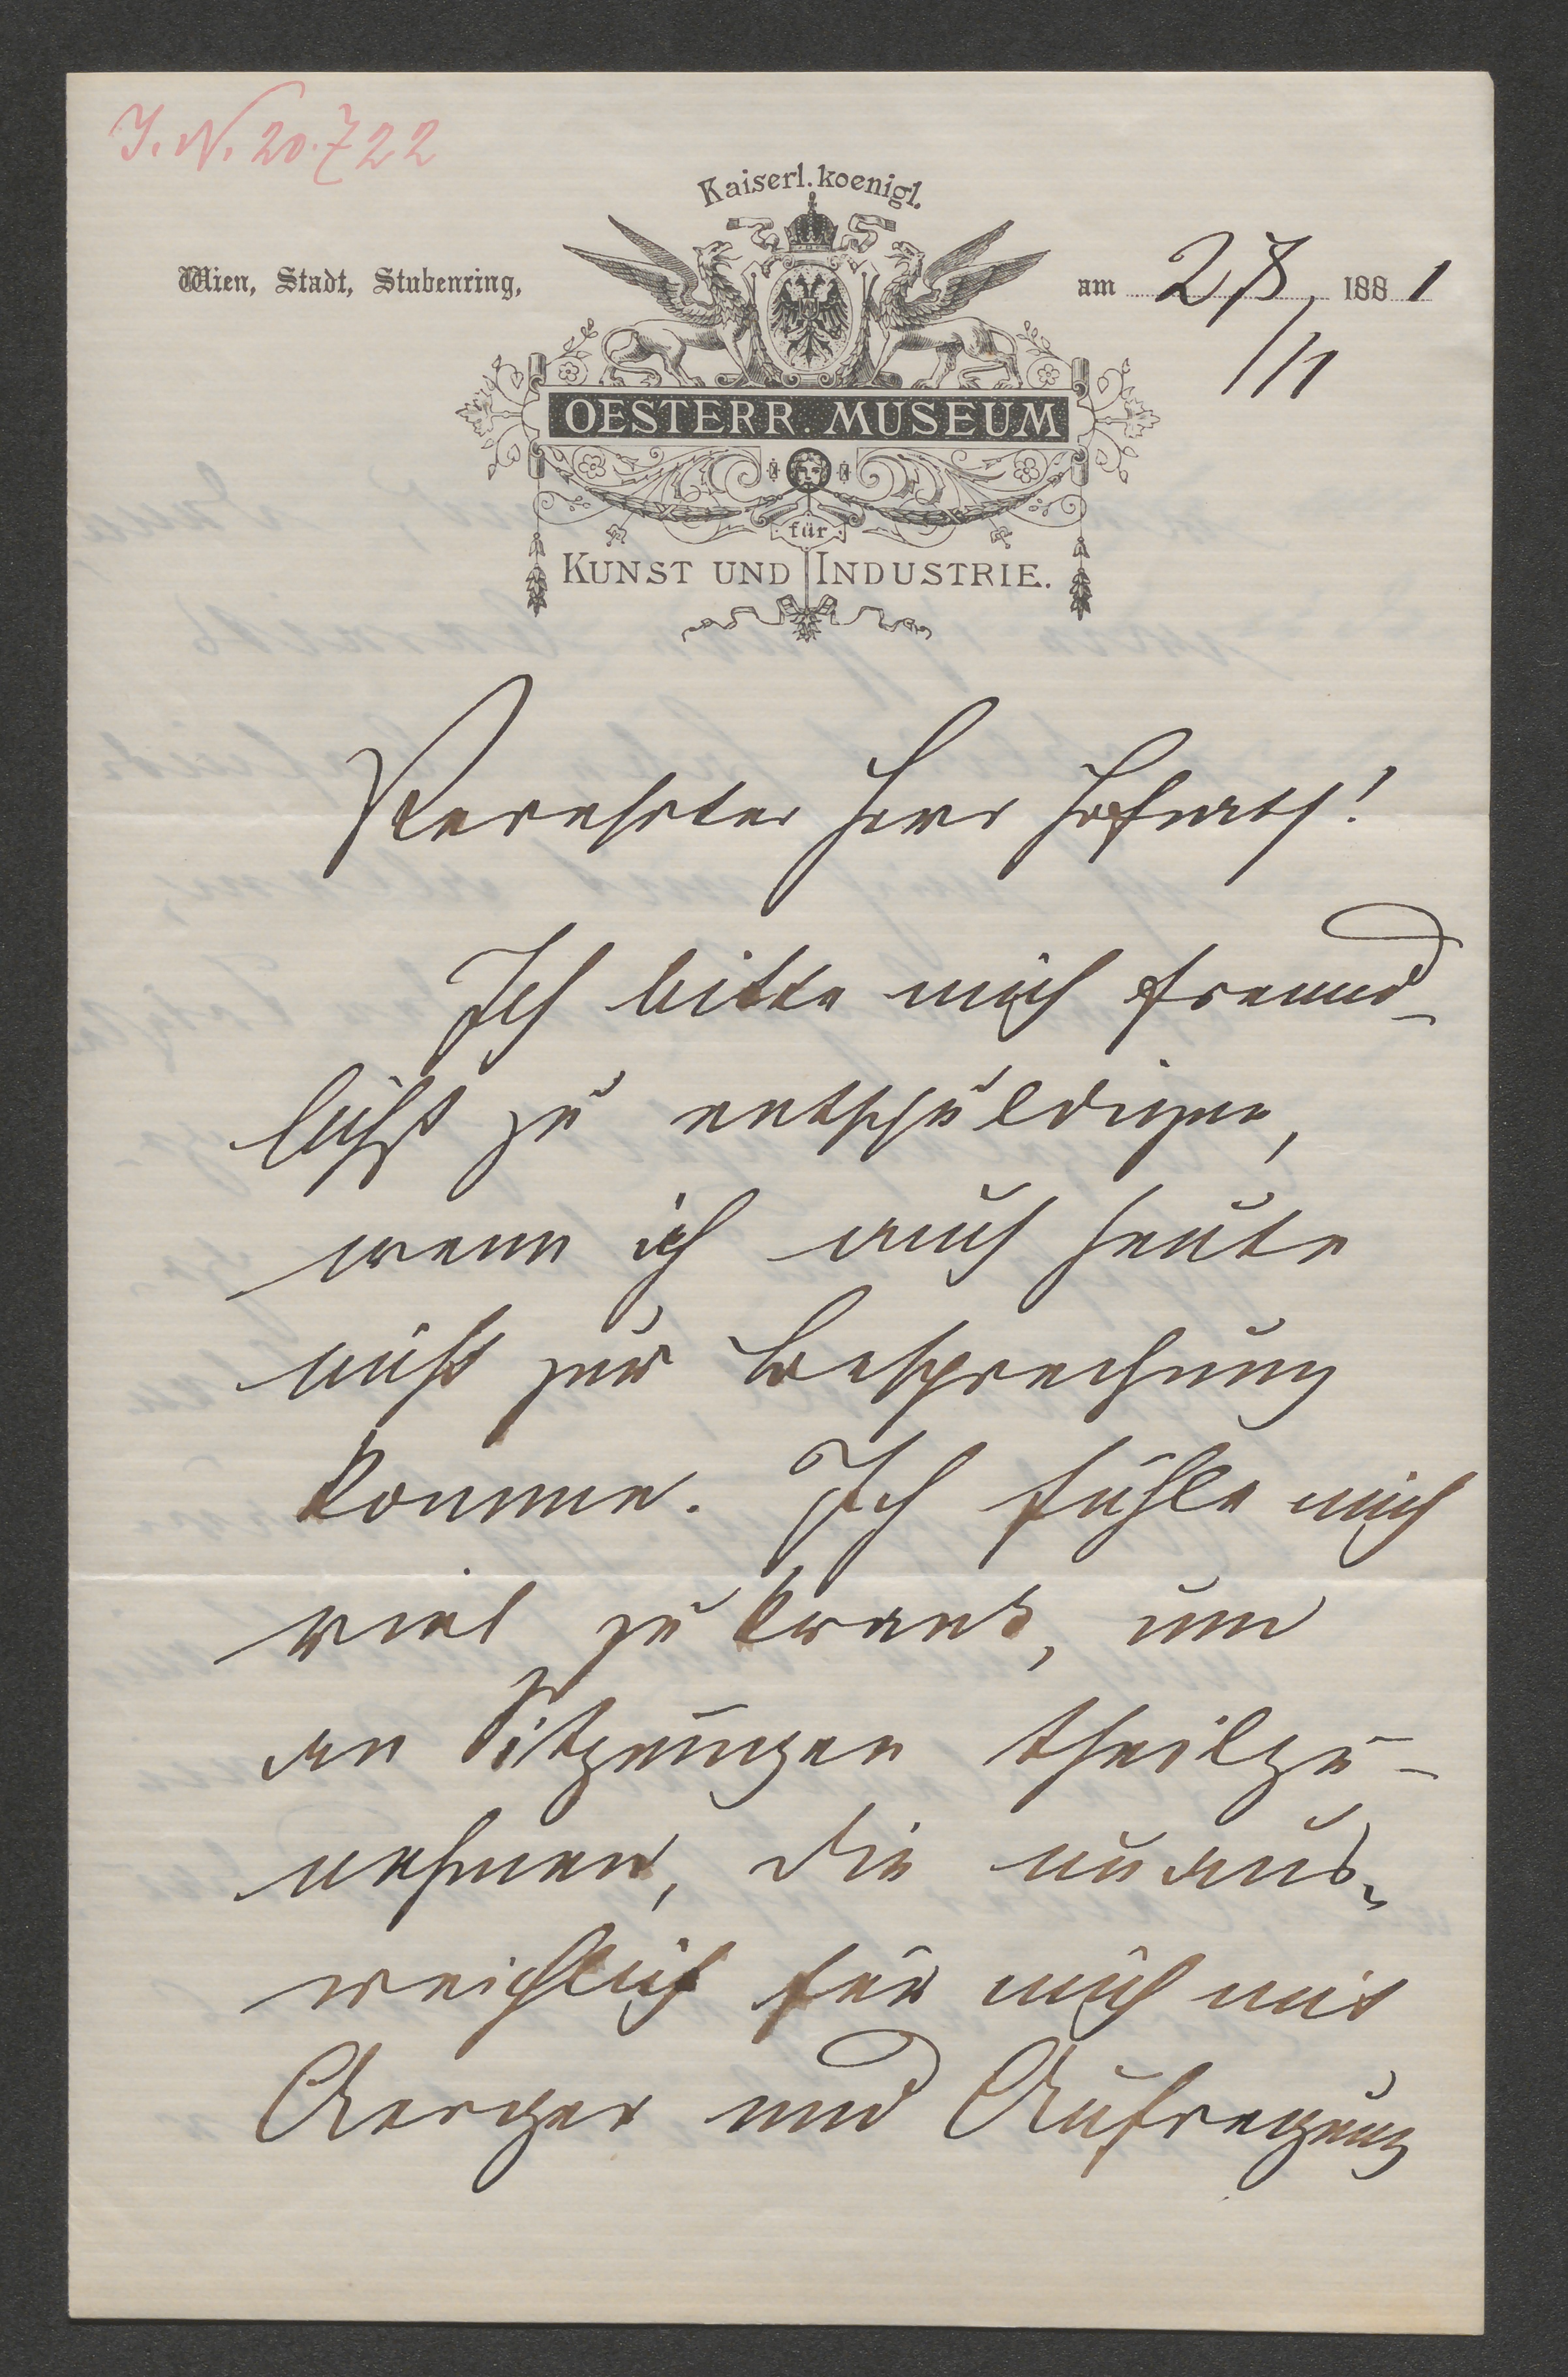 J. N. 20.722
Kaiserl. koenigl.
Wien, Stadt, Stubenring,
am 28/11 1881
OESTERR. MUSEUM
für
KUNST UND INDUSTRIE.
Verehrter Herr Hofrath!
Ich bitte mich freund-
lichst zu entschuldigen,
wenn ich auch heute
nicht zur Besprechung
komme. Ich fühle mich
viel zu krank, um
an Sitzungen theilzu-
nehmen, die unaus-
weichlich für mich mit
Aerger und Aufregung